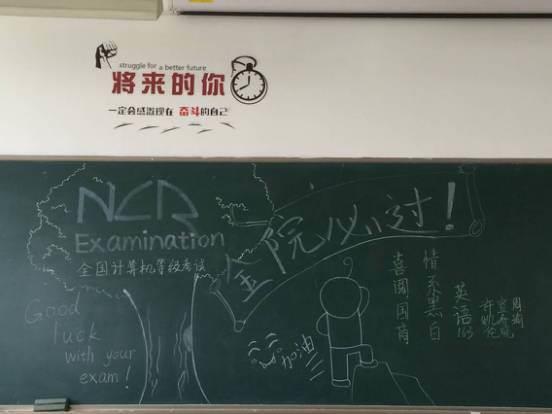 struggle for a better future
将来的你
一定会感激现在奋斗的自己
NCR
Examination
全国计算机等级考试
Good
luck
with your
exam!
金院必过!
加油
情系黑白
喜阅国商
英语
163